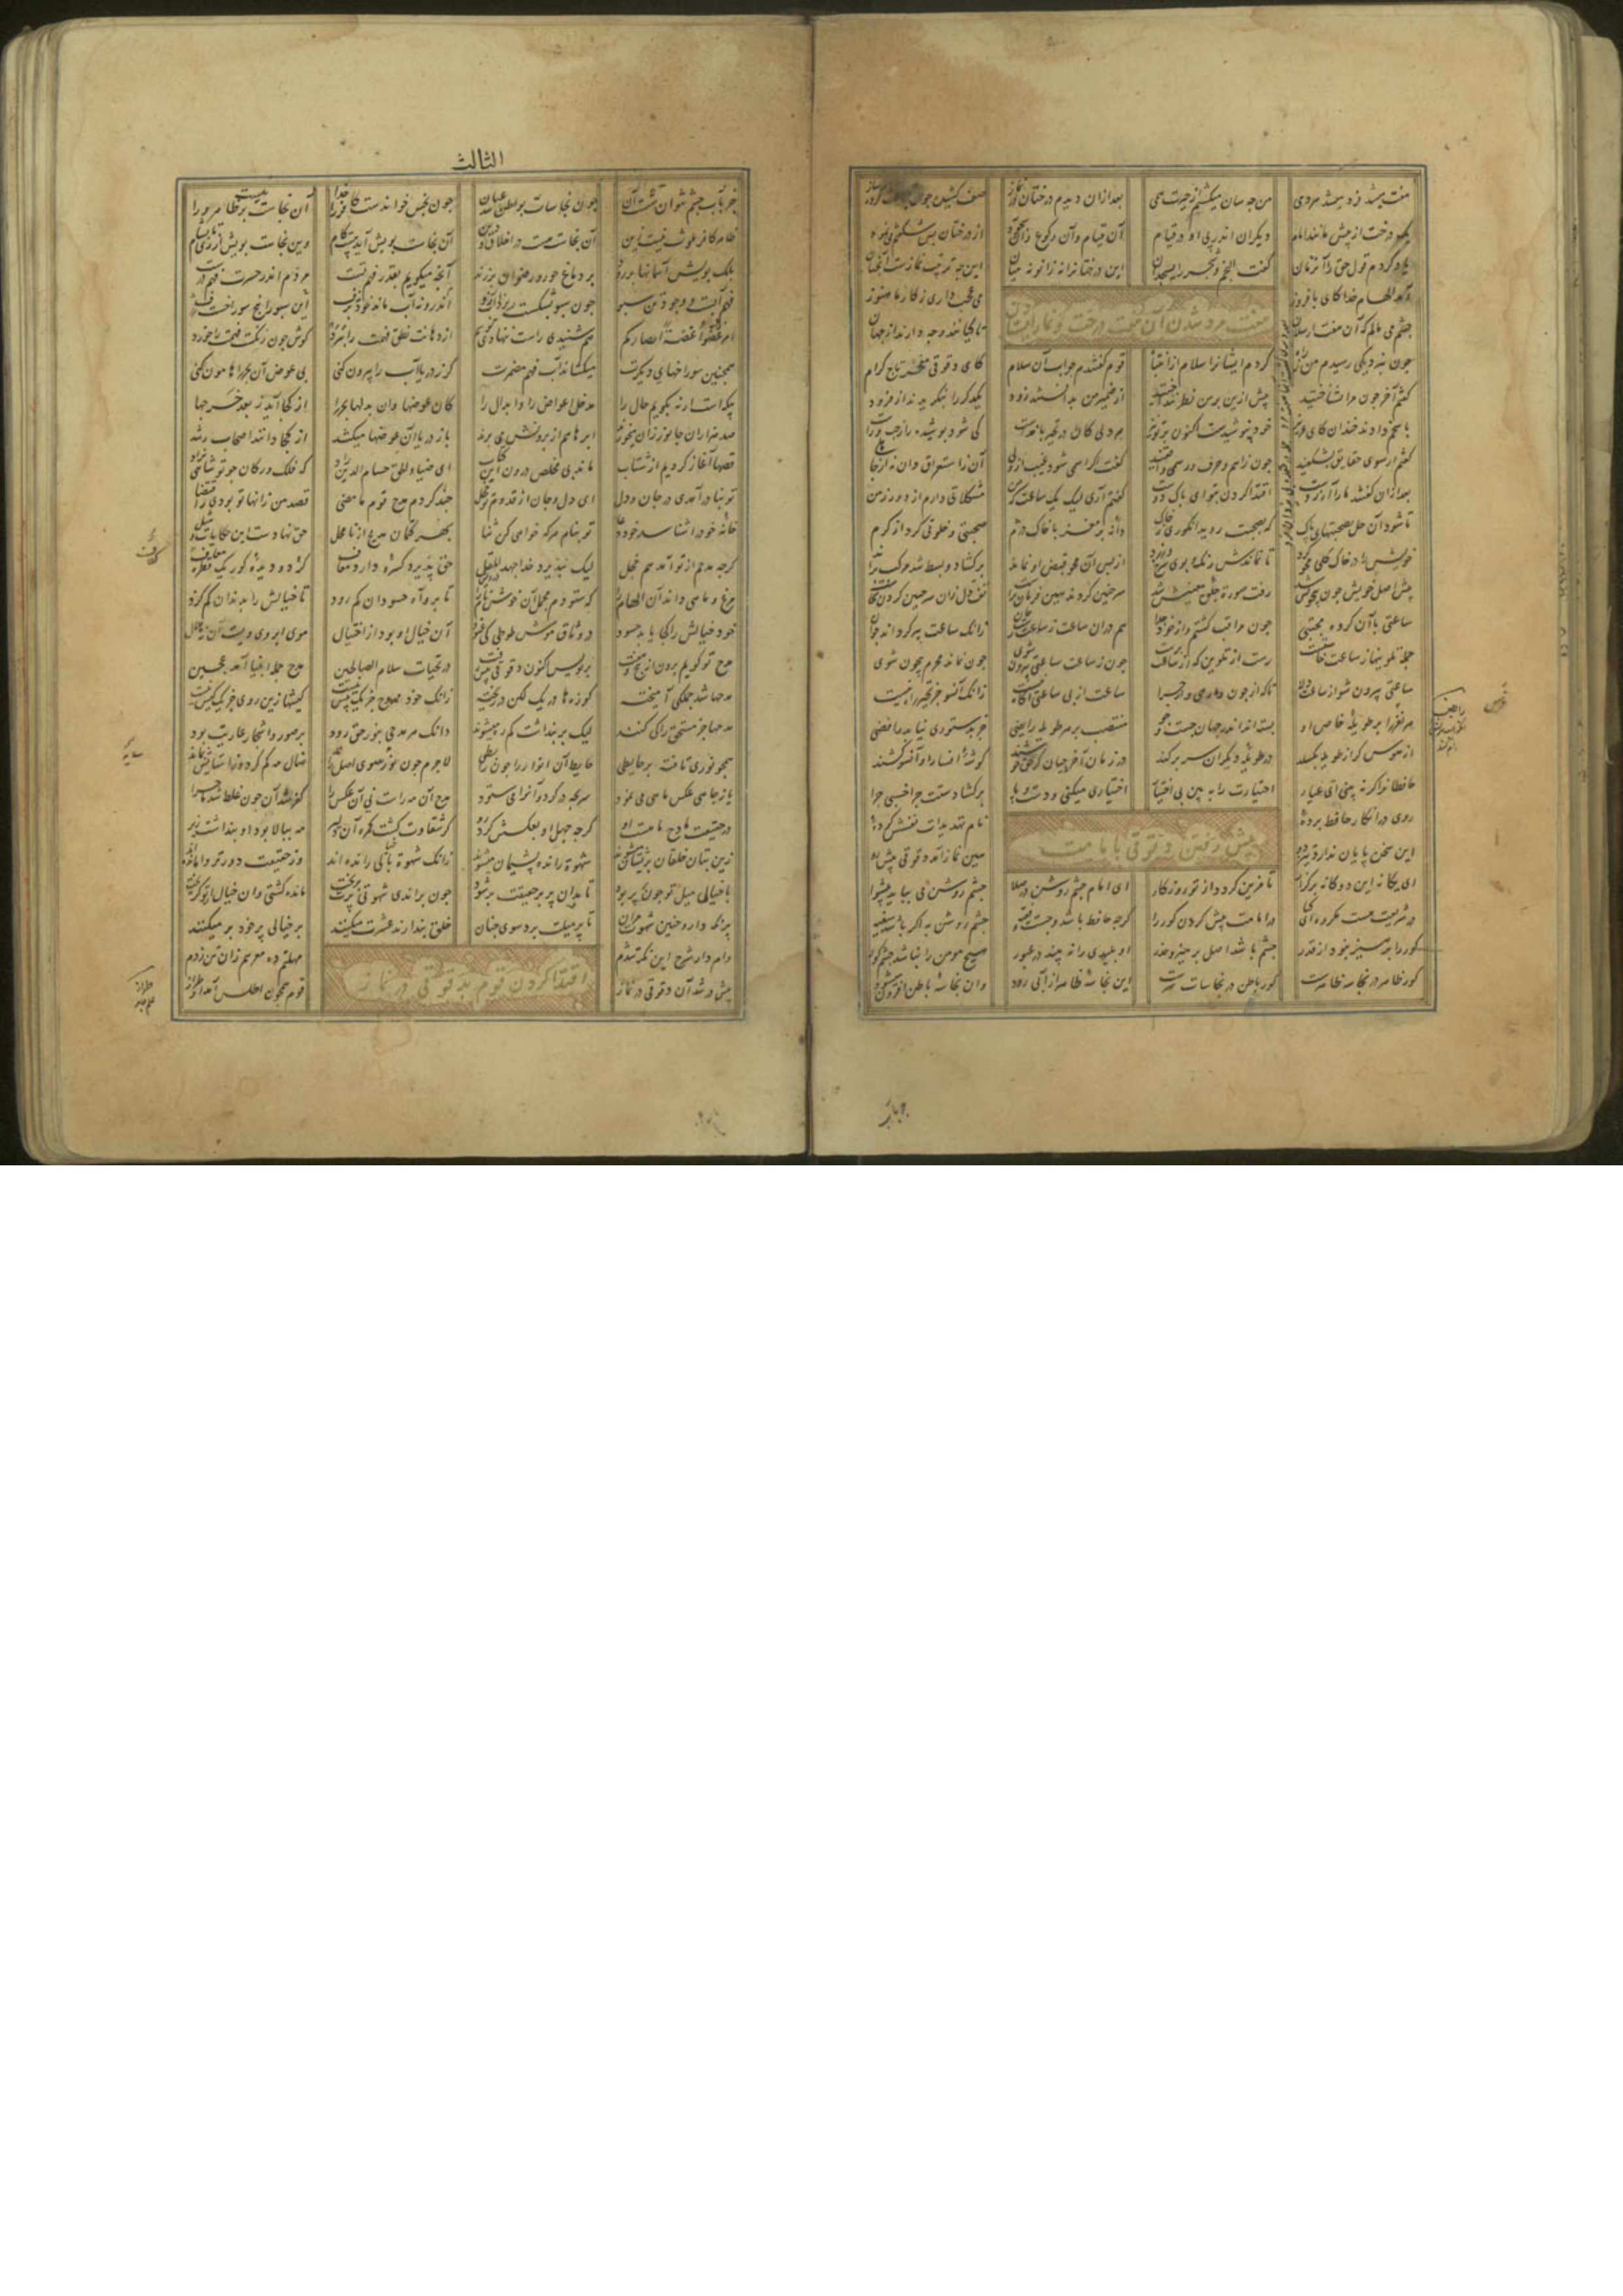 هفت میشد فرد میشد هر دمی من چه سان میکشتم از حیرت همی بعد ازان دیدم درختان در نماز صف کشیده چون جماعت کرده ساز
یک درخت از پیش مانند امام دیکران اندر پی او در قیام آن قیام و آن رکوع و آن سجود از درختان بس شکفتم می نمود
یاد کردم قول حق را آن زمان کفت النجم و شجر را یسجدان این درختانرا نه زانو نه میان این چه ترتیب نمازست آنچنان
آمد الهام خدا کای با فروز می عجب داری ز کار ما هنوز
هفت مرد شدن آن هفت درخت
چشم می مالم که آن هفت ارسلان تا کیانند و چه دارند از جهان
چون بنزدیکی رسیدم من ز راه کردم ایشانرا سلام از انتباه قوم کفتندم جواب آن سلام کای دقوقی مفخر و تاج کرام
کفتم آخر چون مرا بشناختند پیش ازین بر من نظر ننداختند از ضمیر من بدانستند زود یکدکر را بنکریدند از فرود
پاسخم دادند خندان کای عزیز خود بپوشیدست اکنون بر تو نیز بر دلی کان در تحیر با خداست کی شود پوشیده راز چپ و راست
کفتم ار سوی حقایق بشکفند چون ز اسم و حرف رسمی واقفند کفت اکر اسمی شود غیب از ولی آن ز استغراق دان نه از جاهلی
بعد ازان کفتند ما را آرزوست اقتدا کردن بتو ای پاک دوست کفتم آری لیک یک ساعت که من مشکلاتی دارم از دور زمن
تا شود آن حل بصحبتهای پاک که بصحبت روید انکوری ز خاک دانه پر مغز با خاک دژم صحبتی و خلوتی کرد از کرم
خویش را در خاک کلی محو کرد تا نماندش رنک و بوی و سرخ و زرد از پس آن محو قبض او نماند برکشاد و بسط شد مرکب براند
پیش اصل خویش چون بی خویش شد رفت صورت جلوه معنیش شد
ساعتی با آن کروه مجتبی چون مراقب کشتم و از خود جدا هم دران ساعت ز ساعت رست جان زانک ساعت پیر کرداند جوان
جمله تلوینها ز ساعت خاستست رست از تلوین که از ساعت برست چون ز ساعت ساعتی بیرون شوی چون نماند محرم بیچون شوی
ساعتی بیرون شو از ساعت دلا ساعت از بی ساعتی آکاه نیست زانک آنسو جز تحیر راه نیست
هر نفر را بر طویله خاص او بسته اند اندر جهان جست و جو منتصب بر هر طویله رایضی جز بدستوری نیاید رافضی
از هوس کر از طویله بکسلد در طویله دیکران سر بر کند در زمان آخرجیان کوشه افسار او آنسو کشند
حافظانرا کر نبینی ای عیار اختیارت را ببین بی اختیار اختیاری میکنی و دست و پا برکشادست چرا حبسی چرا
روی در انکار حافظ برده نام تهدیدات نفسش کرده
پیش رفتن دقوقی بامامت
این سخن پایان ندارد تیز دو هین نماز آمد دقوقی پیش رو
ای یکانه این دوکانه بر کزار تا مزین کردد از تو روزکار ای امام چشم روشن در صلا چشم روشن می بباید پیشوا
در شریعت هست مکروه ای کیا در امامت پیش کردن کور را کرچه حافظ باشد و چست و فقیه چشم روشن به اکر باشد سفیه
کور را پرهیز نبود از قذر چشم باشد اصل پرهیز و حذر او پلیدی را نبیند در عبور هیچ مومن را مبادا چشم کور
کور ظاهر در نجاسه ظاهرست کور باطن در نجاسات سرست این نجاسه ظاهر از آبی رود وان نجاسه باطن افزون میشود
الثالث
جز بآب چشم نتوان شستن آن چون نجاسات بواطن شد عیان چون نجس خواندست کافر را خدا آن نجاست نیست بر ظاهر ورا
ظاهر کافر ملوث نیست زین آن نجاست هست در اخلاق و دین آن نجاست بویش آید بیست کام وین نجاست بویش از ری تا بشام
بلک بویش آسمانها بر رود بر دماغ حور و رضوان بر رود آنچه میکویم بقدر فهم تست مردم اندر حسرت فهم درست
فهم آبست و وجود تن سبو چون سبو بشکست ریزد آب ازو این سبو را پنج سوراخست ژرف اندرو نه آب ماند خود نه برف
امر غضوا غضة ابصارکم هم شنیدی راست ننهادی تو سم از دهانت نطق فهمت را برد کوش چون ریکست فهمت را خورد
همچنین سوراخهای دیکرت میکشاند آب فهم مضمرت کر ز دریا آب را بیرون کنی بی عوض آن بحر را هامون کنی
بیکه است ارنه بکویم حال را مدخل اعواض را و ابدال را کان عوضها وان بدلها بحر را از کجا آید ز بعد خرجها
صد هزاران جانور زان میخورند ابرها هم از برونش می برند باز دریا آن عوضها میکشد از کجا دانند اصحاب رشد
قصها آغاز کردیم از شتاب ماند بی مخلص درون این کتاب ای ضیاء الحق حسام الدین راد که فلک و ارکان چو تو شاهی نزاد
تو بنادر آمدی در جان و دل ای دل و جان از قدوم تو خجل چند کردم مدح قوم ما مضی قصد من زانها تو بودی ز اقتضا
خانه خود را شناسد خود دعا تو بنام هر که خواهی کن ثنا بهر کتمان مدیح از نامحل حق نهادست این حکایات و مثل
کرچه مدح از تو آمد هم خجل لیک بپذیرد خدا جهد المقل حق پذیرد کسره دارد معاف کز دو دیده کور یک قطره کفاف
مرغ و ماهی داند آن ابهام را که ستودم مجمل آن خوش نام را تا برو آه حسودان کم رود تا خیالش را بدندان کم کزد
خود خیالش را کجا یابد حسود در وثاق موش طوطی کی غنود آن خیال او بود از احتیال موی ابروی ویست آن نه هلال
مدح تو کویم برون از پنج و هفت برنویس اکنون دقوقی پیش رفت در تحیات سلام الصالحین مدح جمله انبیا آمد عجین
مدحها شد جملکی آمیخته کوزه ها در یک لکن در ریخته زانک خود ممدوح جز یک بیش نیست کیشها زین روی جز یک کیش نیست
دانک هر مدحی بنور حق رود بر صور و اشخاص عاریت بود مدحها جز مستحق را کی کنند لیک بر پنداشت کم ره میشوند
همچو نوری تافته بر حایطی حایط آن انوار را چون رابطی لاجرم چون سایه سوی اصل راند ضال مه کم کرد و ز استایش بماند
یا ز چاهی عکس ماهی می نمود سر بچه در کرد و آنرا می ستود
در حقیقت مادح ماهست او کرچه جهل او بعکسش کرد رو مدح آن مه راست نی آن عکس را کفر شد آن چون غلط شد ماجرا
کز شقاوت کشت کمره آن دلیر مه ببالا بود او پنداشت زیر
زین بتان خلقان پریشان میشوند شهوت رانده پشیمان میشوند زانک شهوت با خیالی رانده اند وز حقیقت دورتر وامانده اند
با خیالی میل تو چون پر بود تا بدان پر بر حقیقت بر شود چون براندی شهوتی پرت بریخت مانده کشتی وان خیال از تو کریخت
پر نکه دار و چنین شهوت مران تا پر میلت برد سوی جنان خلق پندارند عشرت میکنند بر خیالی پر خود بر میکنند
وام دار شرح این نکته شدم مهلتم ده معسرم زان تن زدم
اقتدا کردن قوم بدقوقی در نماز
پیش در شد آن دقوقی در نماز قوم همچون اطلس آمد او طراز